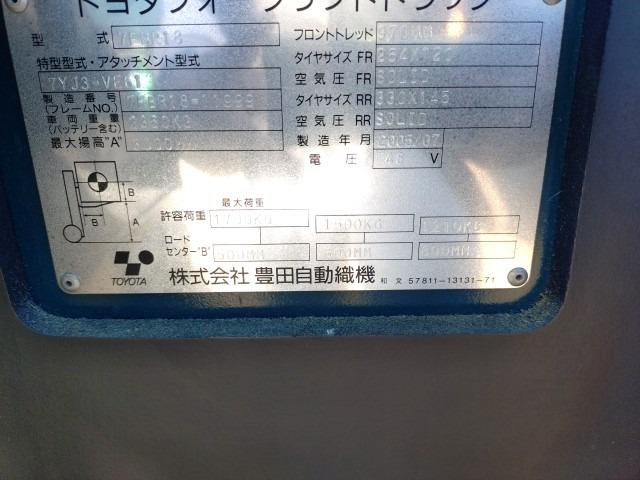 トヨタフォークリフトトラック
型 式
特型型式・アタッチメント型式
製造番号
(フレームNO.)
車両重量
(バッテリー含む)
最大揚高"A"
フロントトレッド
タイヤサイズ FR
空気圧 FR SOLID
タイヤサイズ RR 330X145
空気圧 RR SOLID
製造年月 2005/07
電 圧 48 V
B
B
A
最大荷重
許容荷重 1700KG 1500KG 1210KG
ロード
センター"B" 500MM 600MM 800MM
TOYOTA
株式会社 豊田自動織機 和 文 57811-13131-71